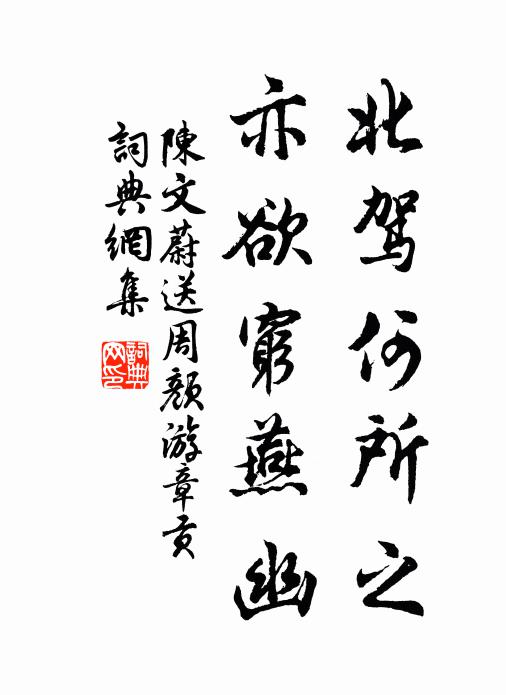 北驾何所之
亦欲窮燕幽
陳文蔚送周顏游章贡
詞典網集
詞典网印